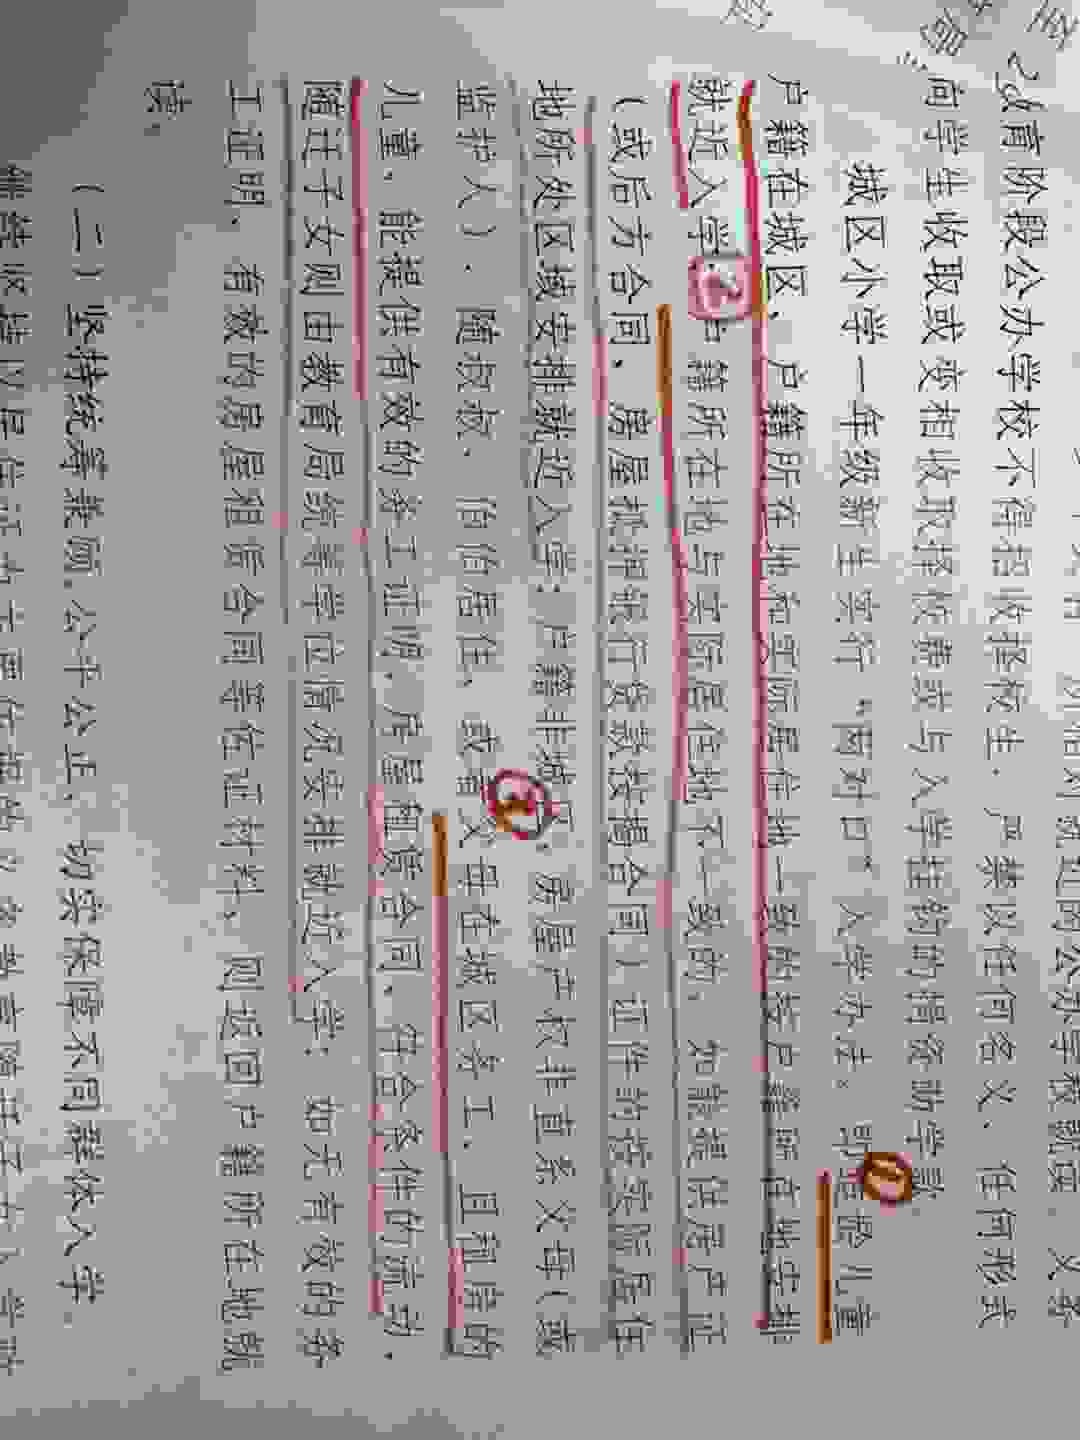 育阶段公办学校不得招收择校生，严禁以任何名义、任何形式
向学生收取或变相收取择校费或与入学挂钩的捐资助学款。
城区小学一年级新生实行“两对口”入学办法。即适龄儿童
①
户籍在城区，户籍所在地和实际居住地一致的按户籍所在地安排
就近入学；户籍所在地与实际居住地不一致的，如能提供房产证
2
（或后方合同，房屋抵押银行贷款按揭合同）证件的按实际居住
地所处区域安排就近入学；户籍非城区，房屋产权非直系父母（或
监护人），随叔叔、伯伯居住，或者父母在城区务工，且租房的
儿童，能提供有效的务工证明，房屋租赁合同，符合条件的流动，
随迁子女则由教育局统筹学位情况安排就近入学；如无有效的务
工证明、有效的房屋租赁合同等佐证材料，则返回户籍所在地就
读。
（二）坚持统筹兼顾，公平公正，切实保障不同群体入学。